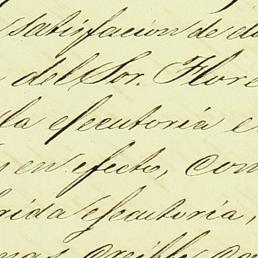 satisfacion de d
del Sor. Flore
la ejecutoria e
en efecto, con
rida ejecutoria,
mas creible co